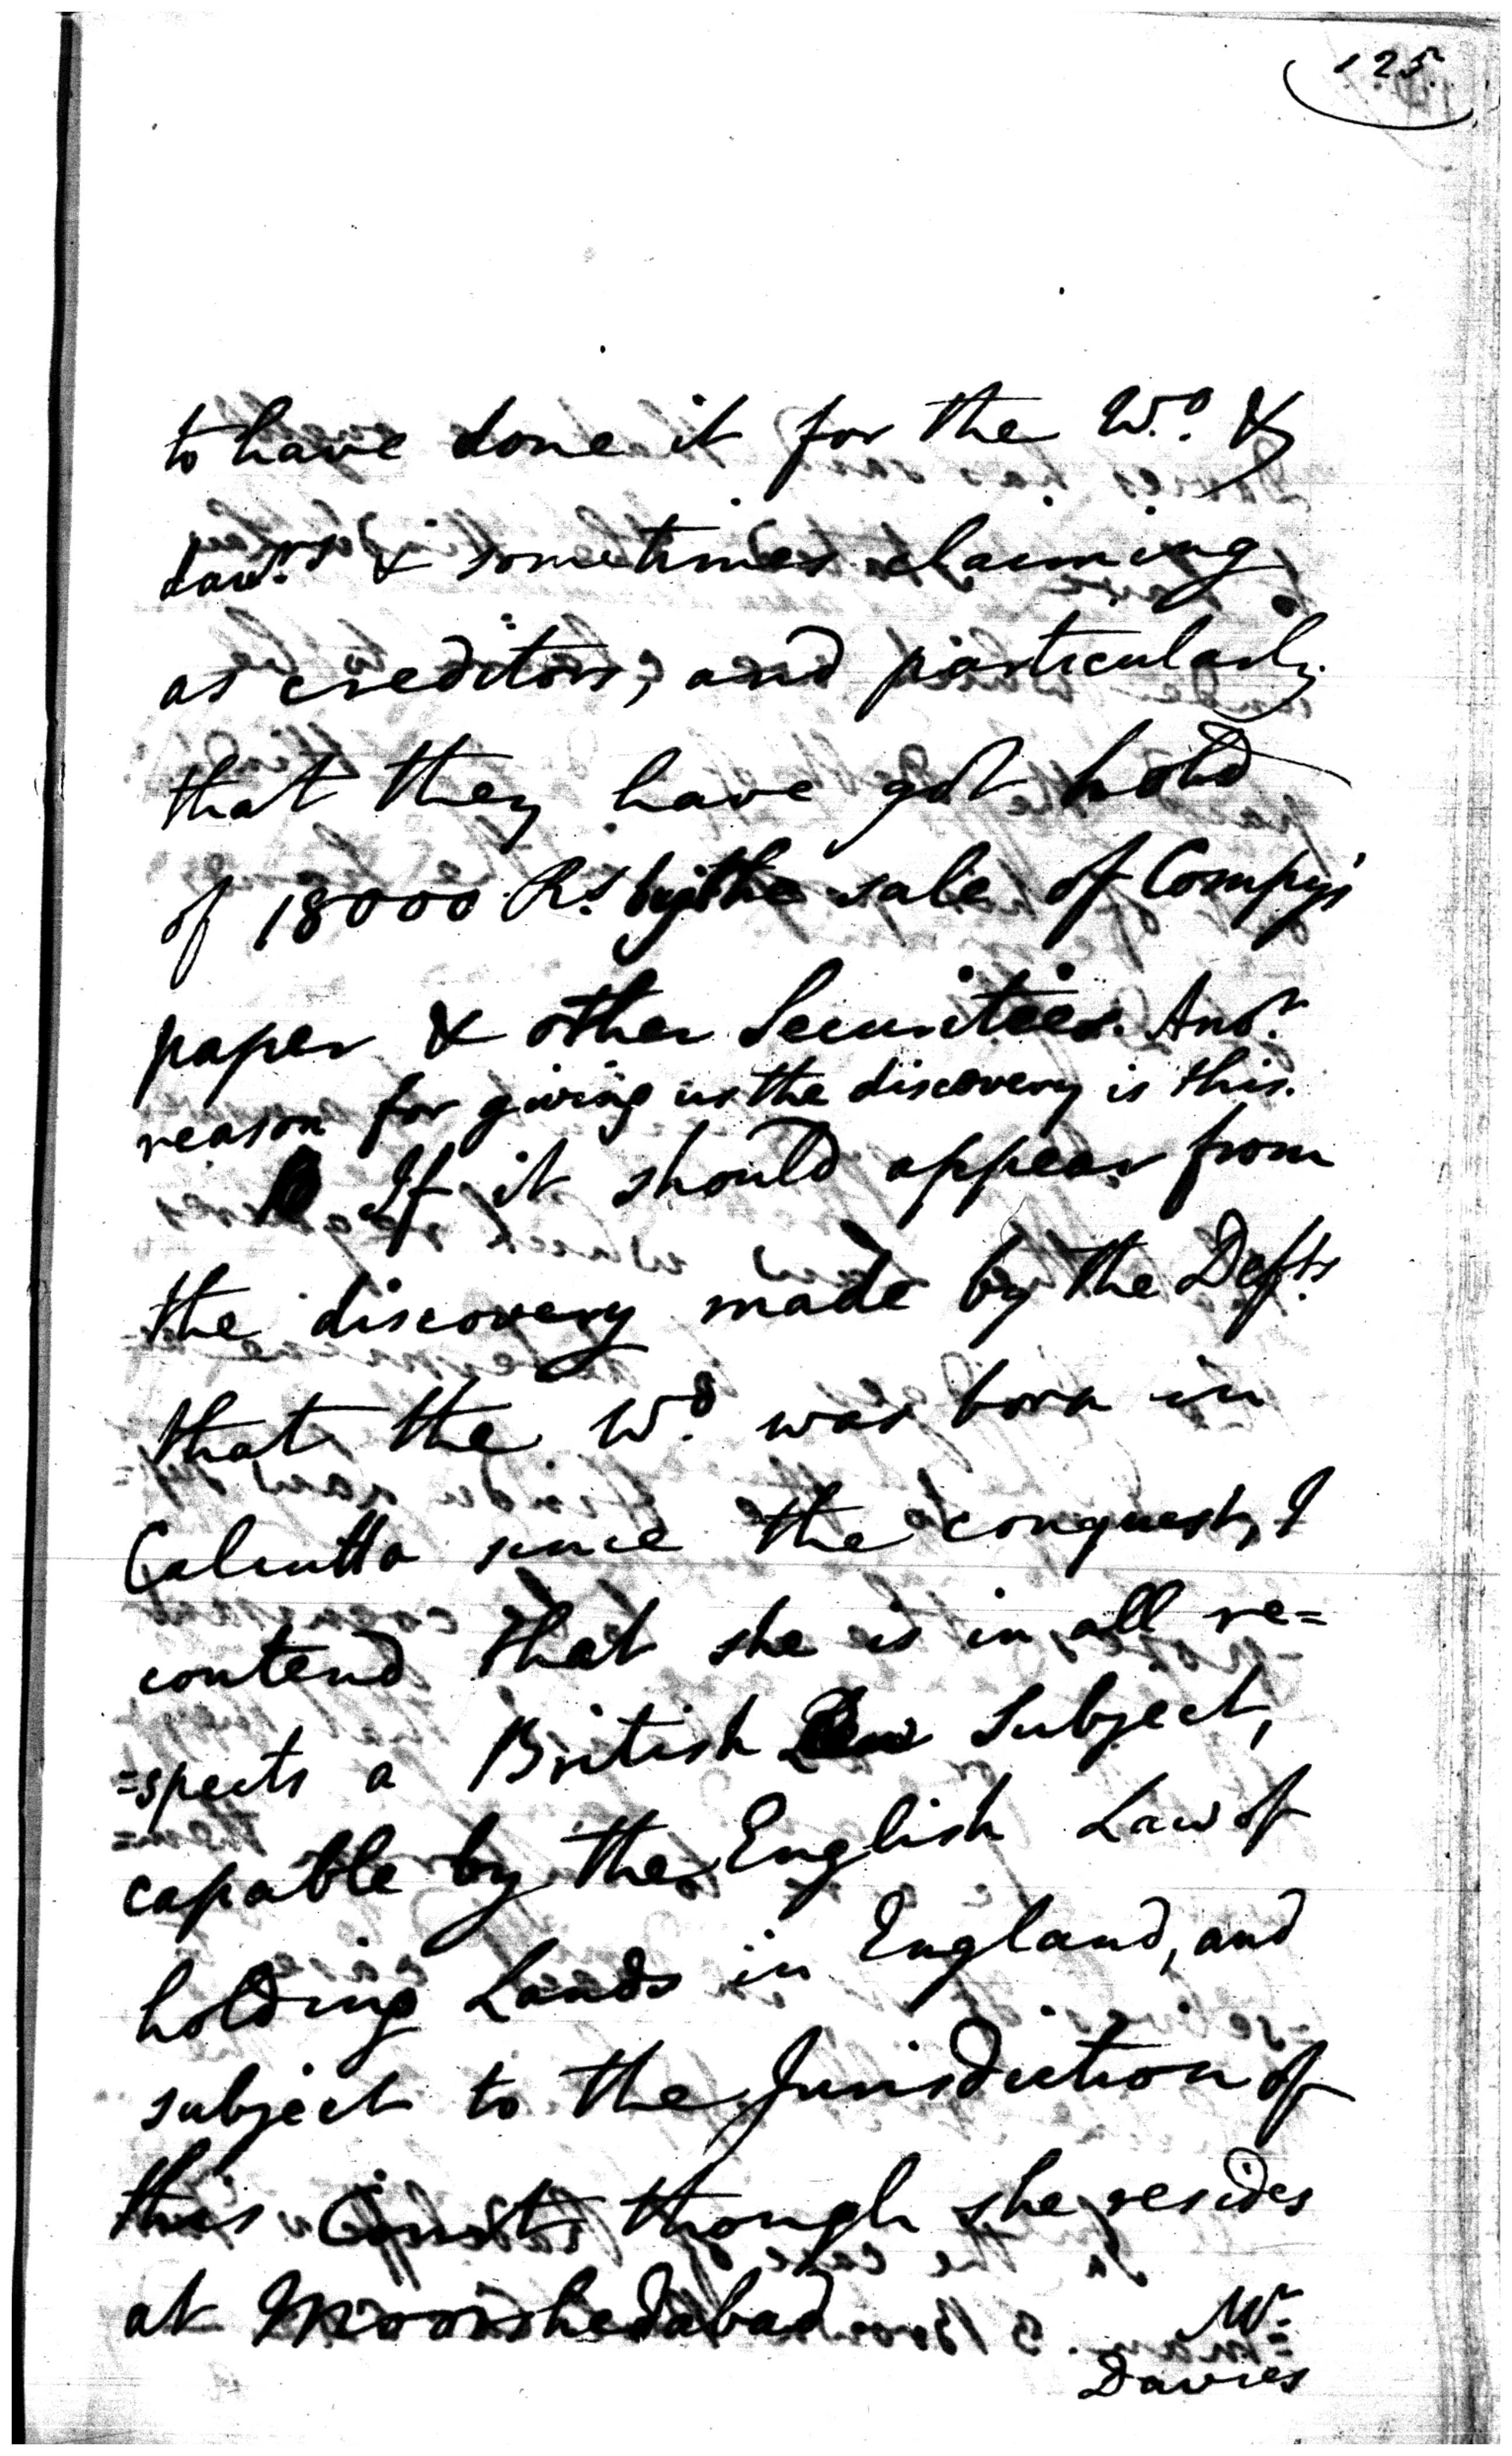 125
to have done it for the W.o &
dau.rs & sometimes claiming
as creditors, and particularly
that they have got hold
of 18000 R.s by the sale of Compy's
paper & other Securities. Ano.r
reason for giving us the discovery is this.
If it should appear from
the discovery made by the Def.ts
that the W.o was born in
Calcutta since the conquest, I
contend that she is in all re=
=spects a British Subject,
capable by the English Law of
holding Lands in England, and
subject to the Jurisdiction of
this Court though she resides
at Moorshedabad.
Mr
Davies